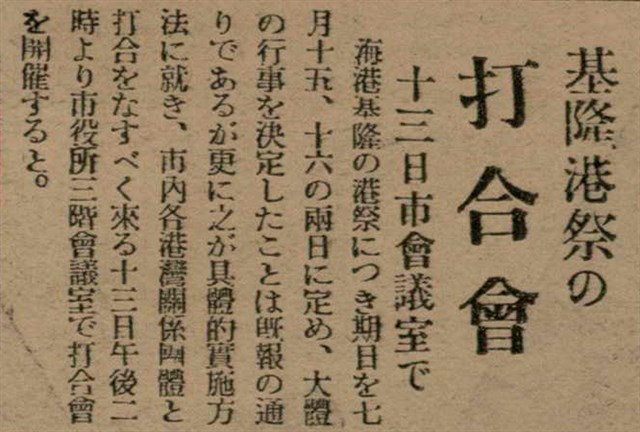 基隆港祭の
打合會
十三日市會議室で
海港基隆の港祭につき期日を七
月十五、十六の兩日に定め、大體
の行事を決定したことは既報の通
りであるが更に之が具體的實施方
法に就き、市內各港灣關係團體と
打合をなすべく來る十三日午後二
時より市役所三階會議室で打合會
を開催すると。